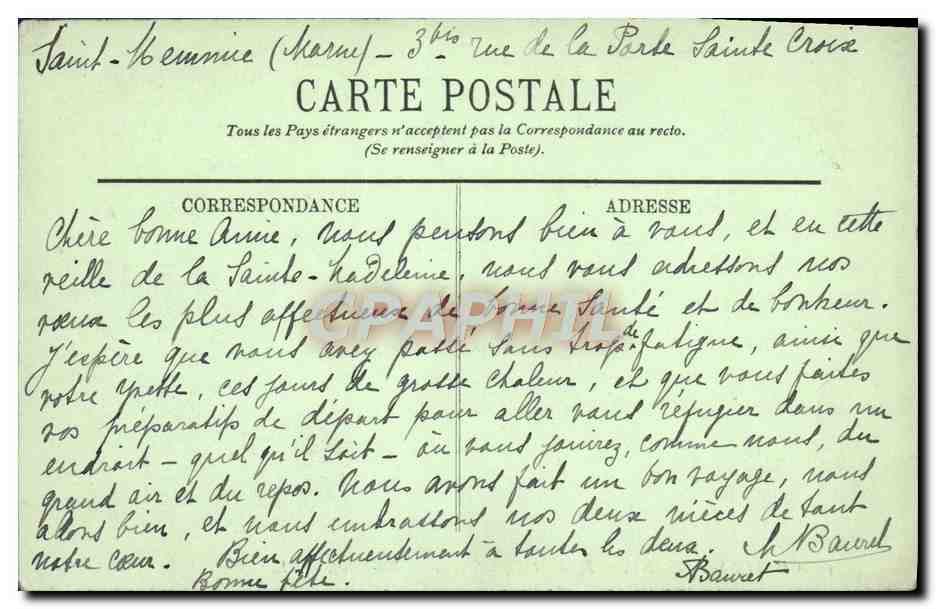 Saint-Memmie (Marne) - 3bis rue de la Porte Sainte Croix
CARTE POSTALE
Tous les Pays étrangers n'acceptent pas la Correspondance au recto.
(Se renseigner à la Poste).
CORRESPONDANCE
ADRESSE
Chère bonne Amie, nous pensons bien à vous, et en cette
veille de la Sainte-Madeleine, nous vous adressons nos
vœux les plus affectueux de bonne santé et de bonheur.
J'espère que vous avez passé sans trop de fatigue, ainsi que
votre Yvette, ces jours de grosse chaleur, et que vous faites
vos préparatifs de départ pour aller vous réfugier dans un
endroit - quel qu'il soit - où vous jouirez, comme nous, du
grand air et du repos. Nous avons fait un bon voyage, nous
allons bien, et nous embrassons nos deux nièces de tout
notre cœur. Bien affectueusement à toutes les deux. Bauret
Bonne fête. ABauret
CPAPHIL